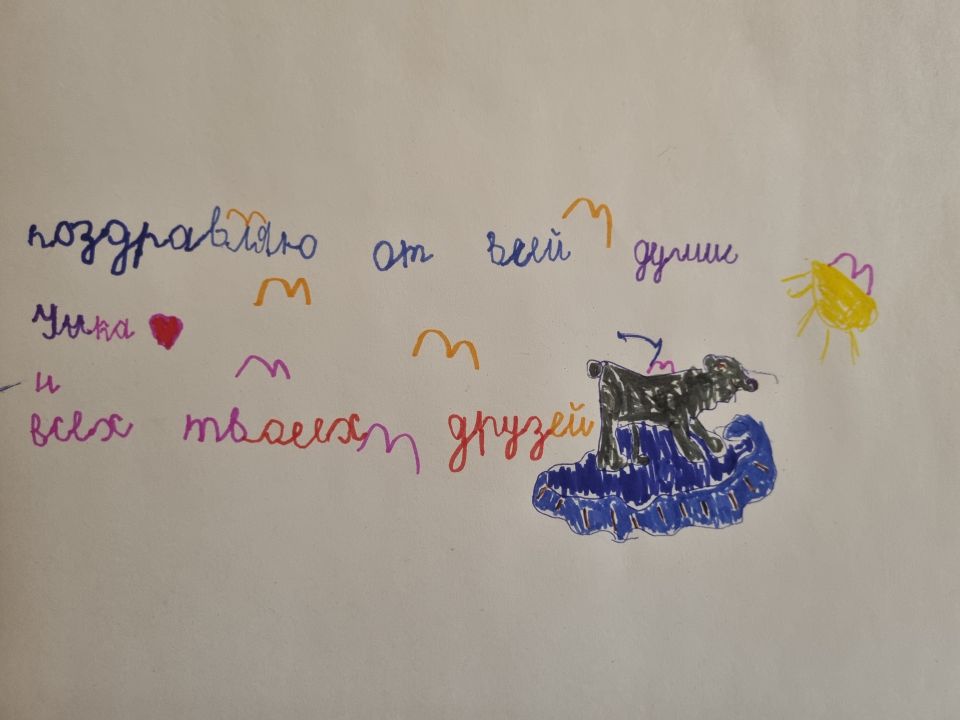 поздравляю от всей думик
Умка
и
всех твоеех друзей